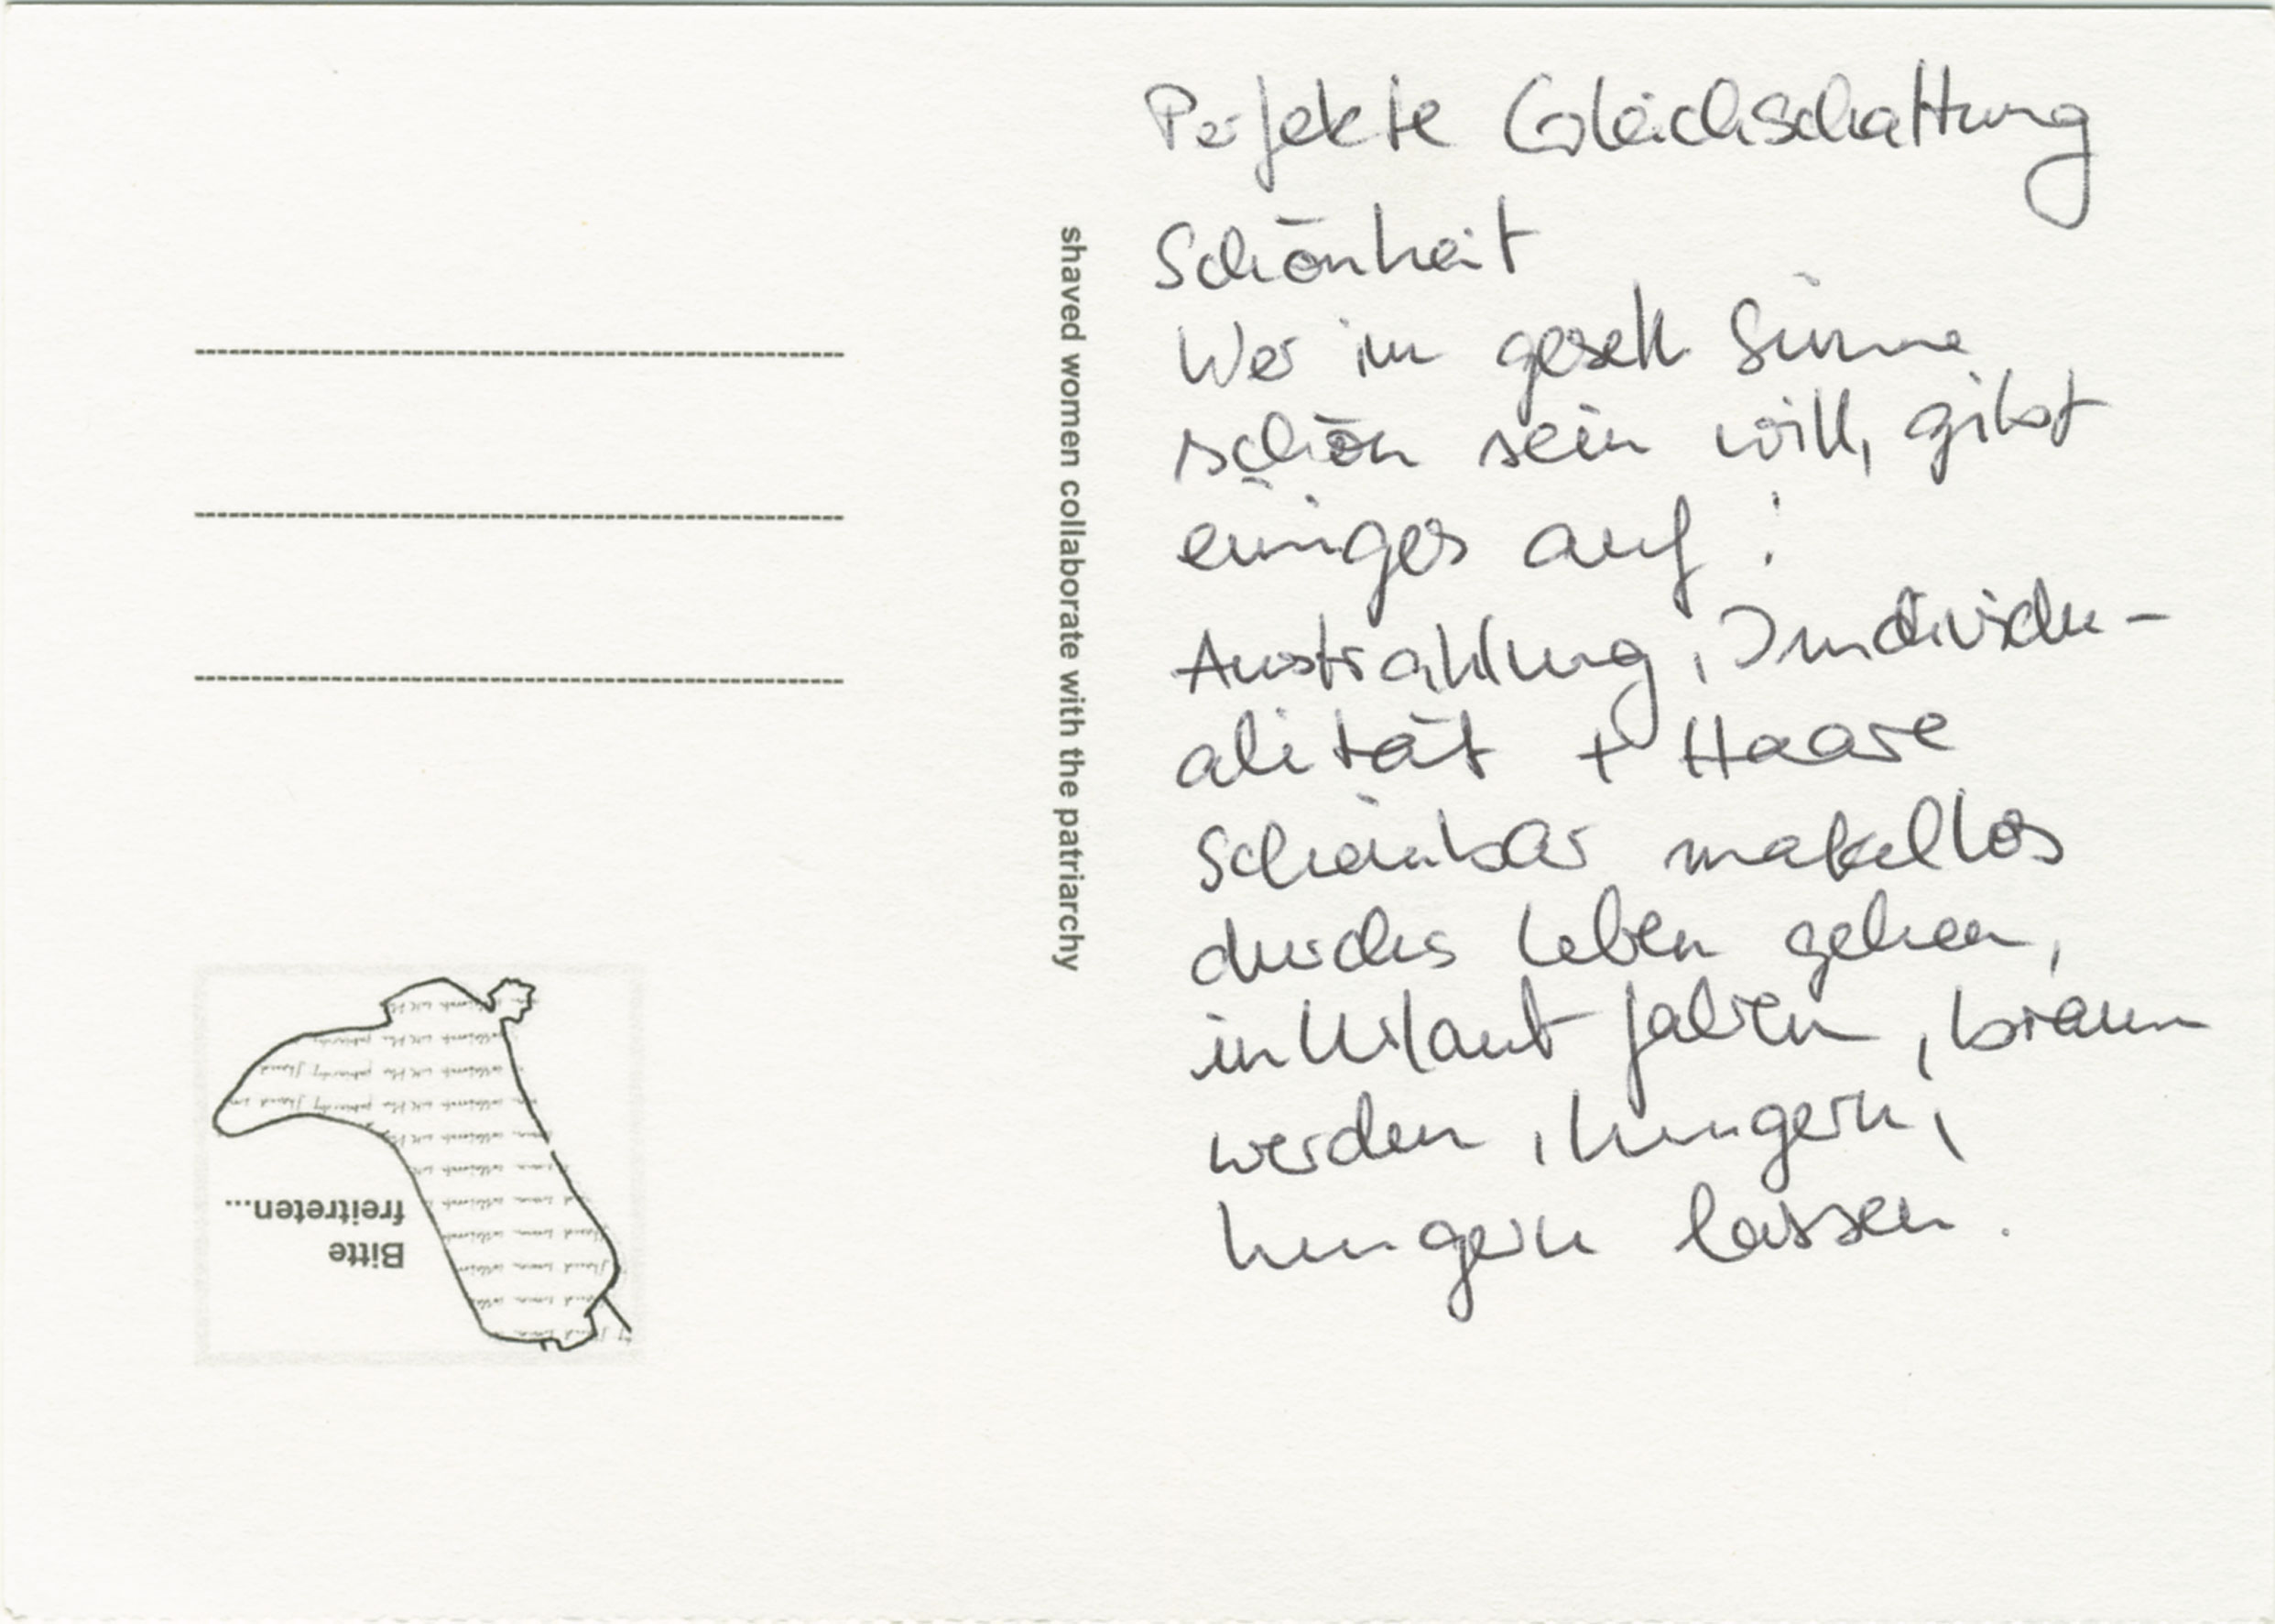 Perfekte Gleichschaltung
Schönheit
Wer im gesell. Sinne
schön sein will, gibt
einiges auf:
Ausstrahlung, Individu-
alität + Haare
Scheinbar makellos
durchs Leben gehen,
in Urlaub fahren, braun
werden, hungern,
hungern lassen.
shaved women collaborate with the patriarchy
Bitte
freitreten...